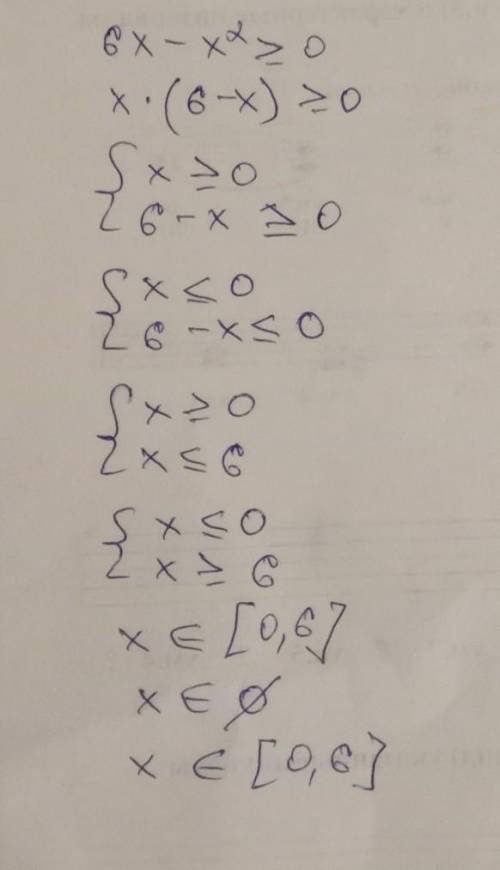 6x - x² ≥ 0
x · (6 - x) ≥ 0
{ x ≥ 0
6 - x ≥ 0
{ x ≤ 0
6 - x ≤ 0
{ x ≥ 0
x ≤ 6
{ x ≤ 0
x ≥ 6
x ∈ [0,6]
x ∈ ∅
x ∈ [0,6]